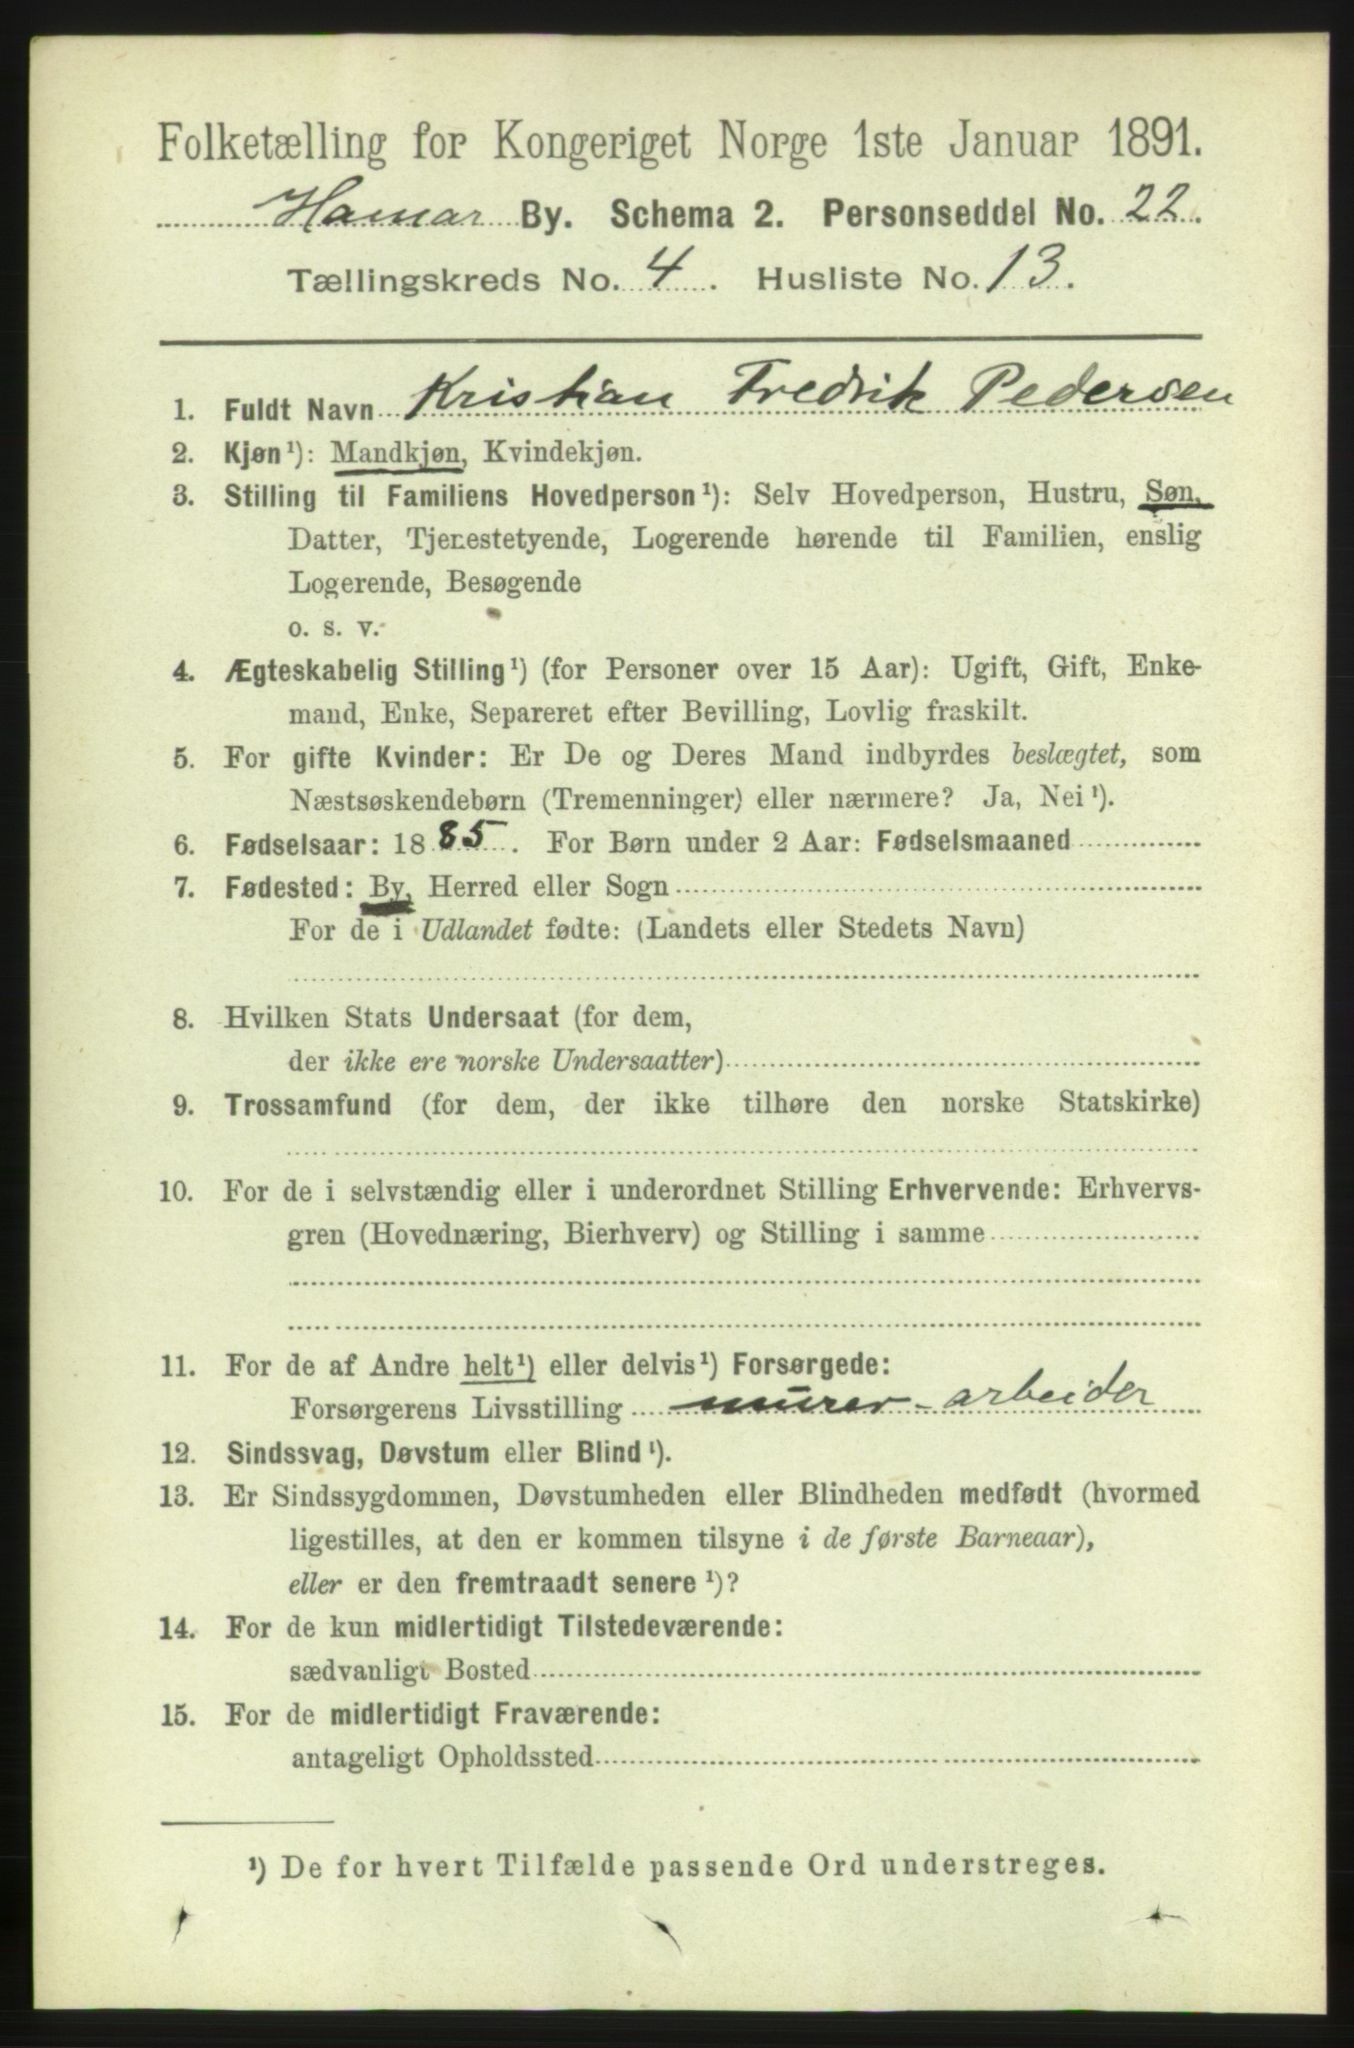 Folketælling for Kongeriget Norge 1ste Januar 1891.
Hamar By. Schema 2. Personseddel No. 22.
Tællingskreds No. 4. Husliste No. 13.
1. Fuldt Navn Kristian Fredrik Pedersen
2. Kjøn¹): Mandkjøn, Kvindekjøn.
3. Stilling til Familiens Hovedperson¹): Selv Hovedperson, Hustru, Søn,
Datter, Tjenestetyende, Logerende hørende til Familien, enslig
Logerende, Besøgende
o. s. v.
4. Ægteskabelig Stilling¹) (for Personer over 15 Aar): Ugift, Gift, Enke-
mand, Enke, Separeret efter Bevilling, Lovlig fraskilt.
5. For gifte Kvinder: Er De og Deres Mand indbyrdes beslægtet, som
Næstsøskendebørn (Tremenninger) eller nærmere? Ja, Nei¹).
6. Fødselsaar: 1885. For Børn under 2 Aar: Fødselsmaaned
7. Fødested: By, Herred eller Sogn
For de i Udlandet fødte: (Landets eller Stedets Navn)
8. Hvilken Stats Undersaat (for dem,
der ikke ere norske Undersaatter)
9. Trossamfund (for dem, der ikke tilhøre den norske Statskirke)
10. For de i selvstændig eller i underordnet Stilling Erhvervende: Erhvervs-
gren (Hovednæring, Bierhverv) og Stilling i samme
11. For de af Andre helt¹) eller delvis¹) Forsørgede:
Forsørgerens Livsstilling murer-arbeider
12. Sindssvag, Døvstum eller Blind¹).
13. Er Sindssygdommen, Døvstumheden eller Blindheden medfødt (hvormed
ligestilles, at den er kommen tilsyne i de første Barneaar),
eller er den fremtraadt senere¹)?
14. For de kun midlertidigt Tilstedeværende:
sædvanligt Bosted
15. For de midlertidigt Fraværende:
antageligt Opholdssted
¹) De for hvert Tilfælde passende Ord understreges.